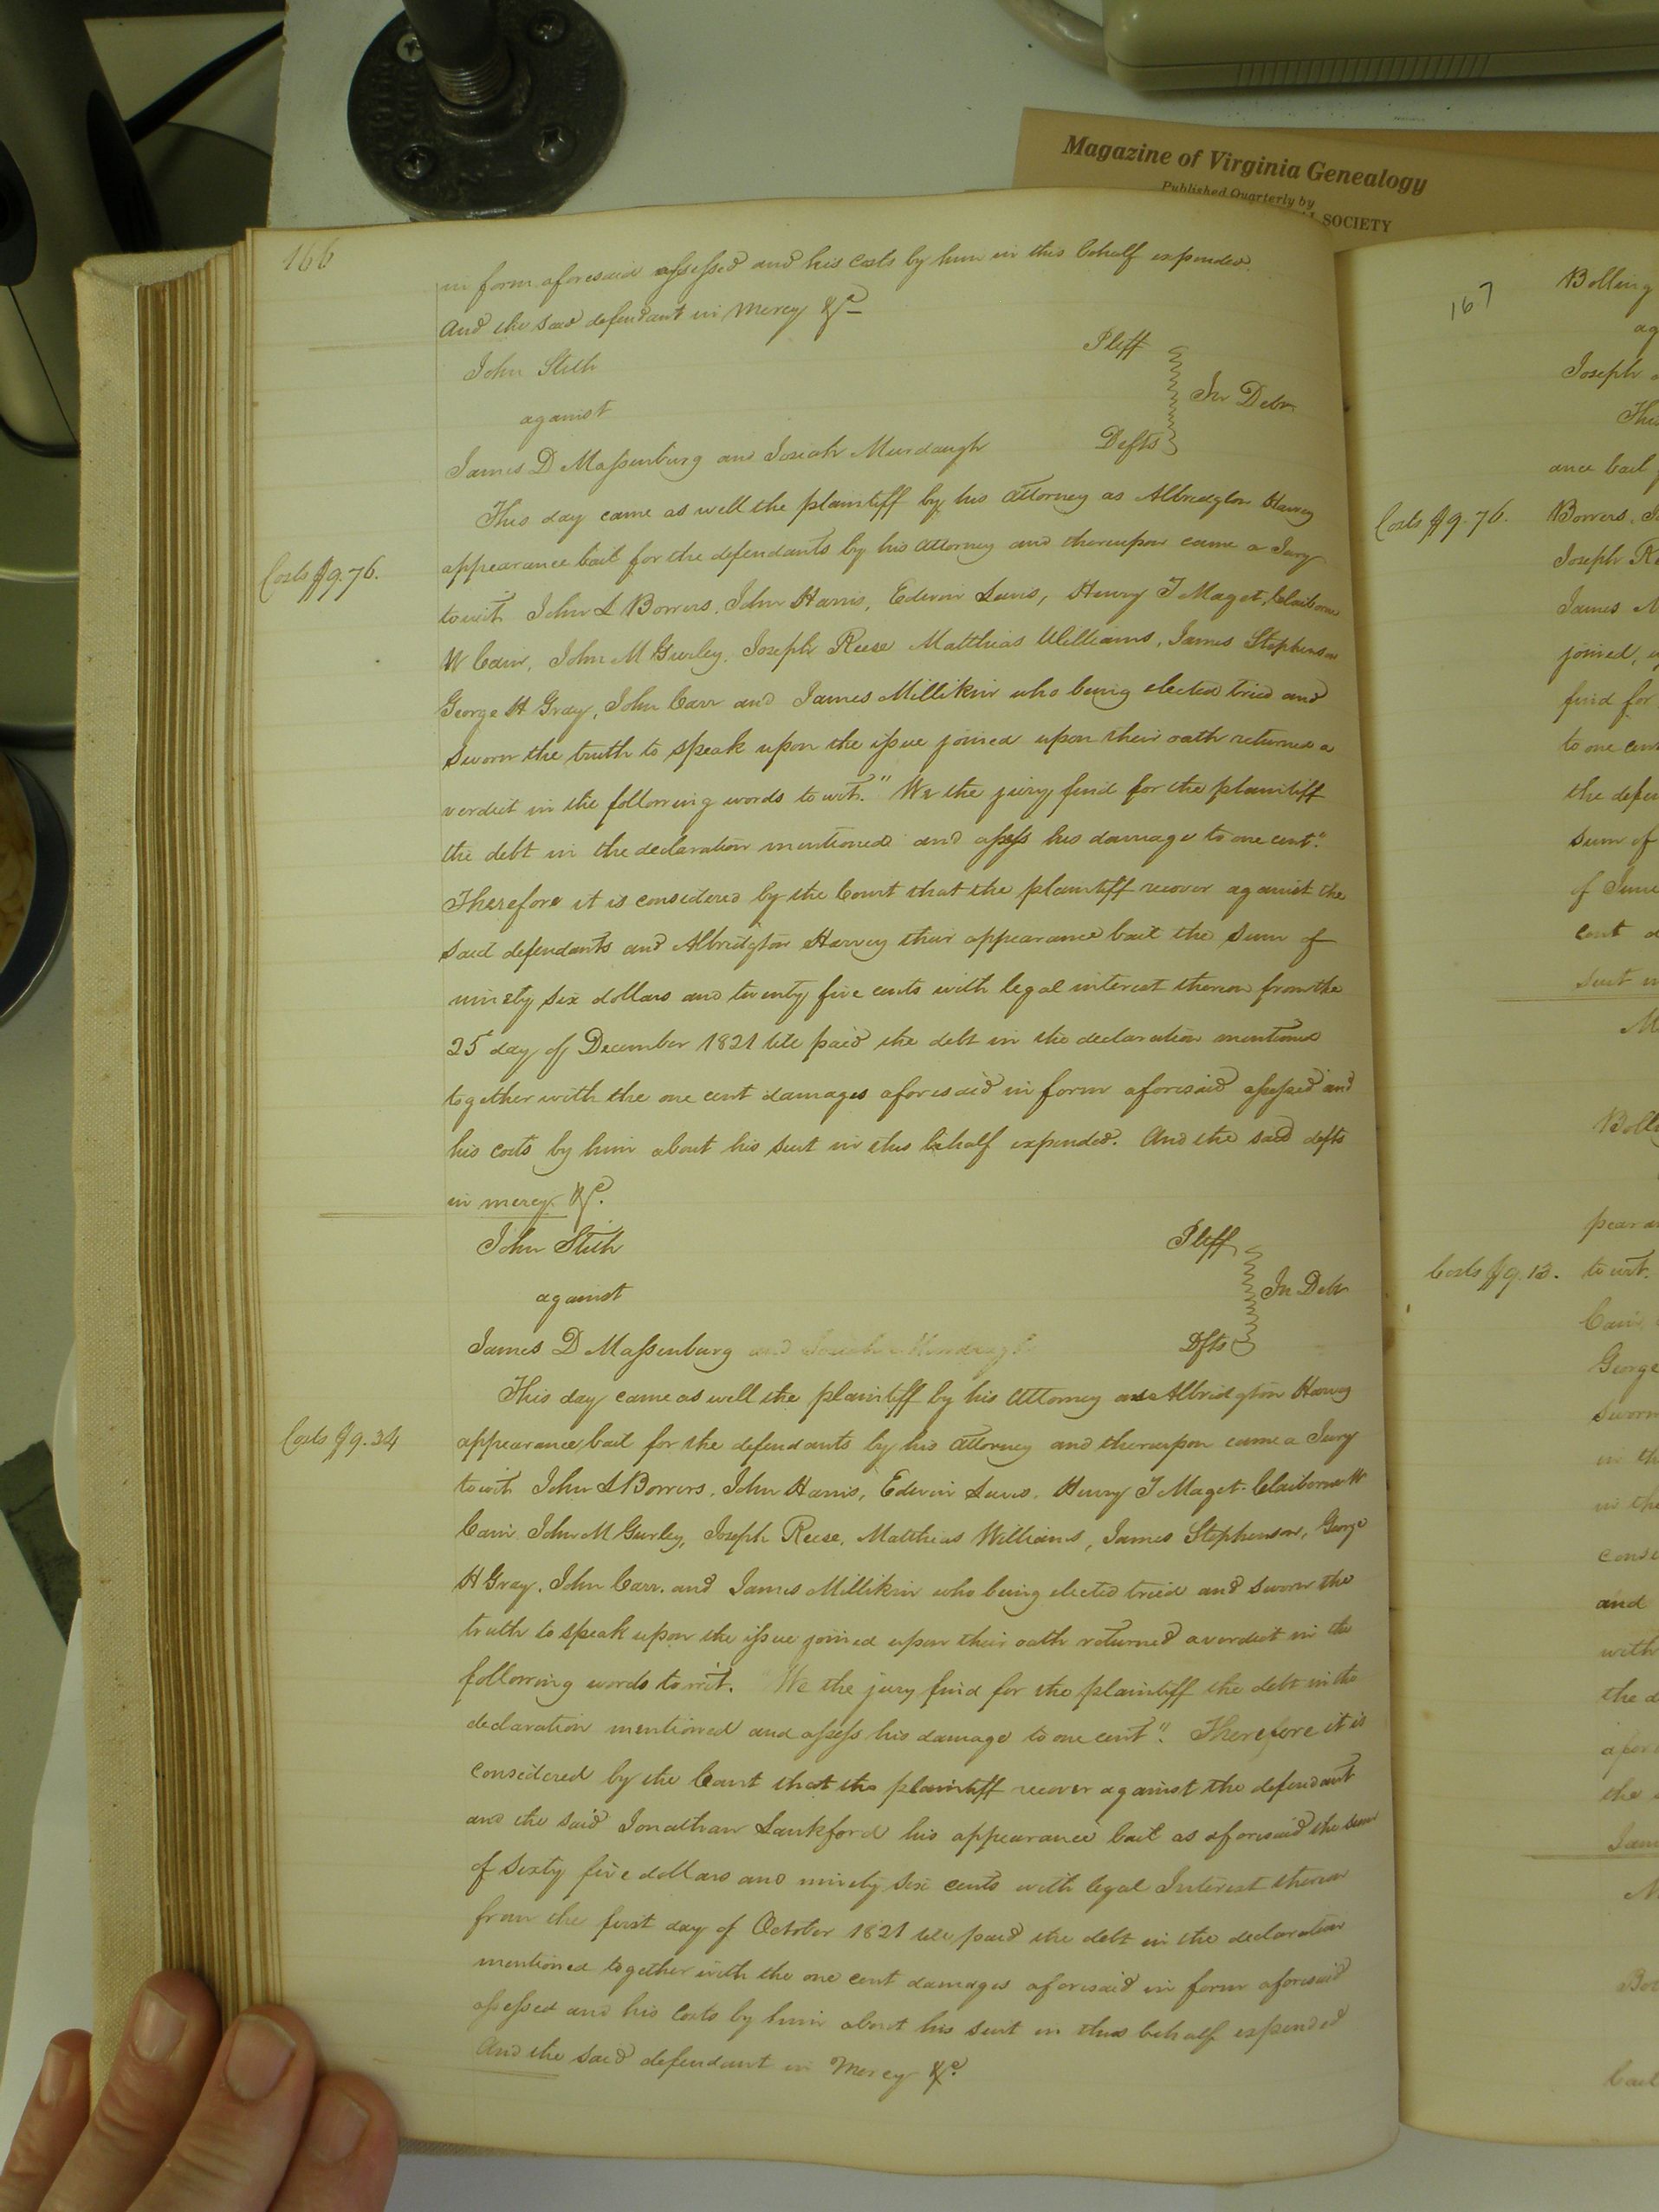 Magazine of Virginia Genealogy
Published Quarterly by
SOCIETY
166
in form aforesaid assessed and his costs by him in this behalf expended.
And the said defendant in Mercy &c
John Stith Pltff
against In Debt
James D Massenburg and Josiah Murdaugh Defts
This day came as well the plaintiff by his Attorney as Albridgton Harvey
appearance bail for the defendants by his attorney and thereupon came a Jury
Costs $9.76.
towit John S Borrers, John Harris, Edwin Lewis, Henry J Maget, Claiborne
W Cain, John M Gurley, Joseph Reese Matthias Williams, James Stephenson
George H Gray, John Carr and James Millikin who being elected tried and
sworn the truth to speak upon the issue joined upon their oath returned a
verdict in the following words to wit. "We the jury find for the plaintiff
the debt in the declaration mentioned and assess his damage to one cent".
Therefore it is considered by the Court that the plaintiff recover against the
said defendants and Albridgton Harvey their appearance bail the sum of
ninety six dollars and twenty five cents with legal interest thereon from the
25 day of December 1821 till paid the debt in the declaration mentioned
together with the one cent damages aforesaid in form aforesaid assessed and
his costs by him about his suit in this behalf expended. And the said defts
in mercy &c.
John Stith Pltff
against In Debt
James D Massenburg and Josiah Murdaugh Dfts
This day came as well the plaintiff by his Attorney as Albridgton Harvey
Costs $9.34
appearance bail for the defendants by his Attorney and thereupon came a Jury
towit John S Borrers, John Harris, Edwin Lewis, Henry J Maget. Claiborne W
Cain, John M Gurley, Joseph Reese, Matthias Williams, James Stephenson, George
H Gray, John Carr, and James Millikin who being elected tried and sworn the
truth to speak upon the issue joined upon their oath returned a verdict in the
following words to wit. "We the jury find for the plaintiff the debt in the
declaration mentioned and assess his damage to one cent". Therefore it is
considered by the Court that the plaintiff recover against the defendant
and the said Jonathan Lankford his appearance bail as aforesaid the sum
of sixty five dollars and ninety six cents with legal Interest thereon
from the first day of October 1821 till paid the debt in the declaration
mentioned together with the one cent damages aforesaid in form aforesaid
assessed and his costs by him about his suit in this behalf expended
And the said defendant in Mercy &c.
167
Bolling
ag
Joseph
This
ance bail
Costs $9.76.
Borrers, J
Joseph R
James M
joined,
find for
to one cent
the defen
sum of
of June
cent
suit in
M
Boll
pear
Costs $9.12.
to wit.
Cain,
George
sworn
in th
in the
consi
and
with
the d
afor
the
Jam
M
Bo
bail